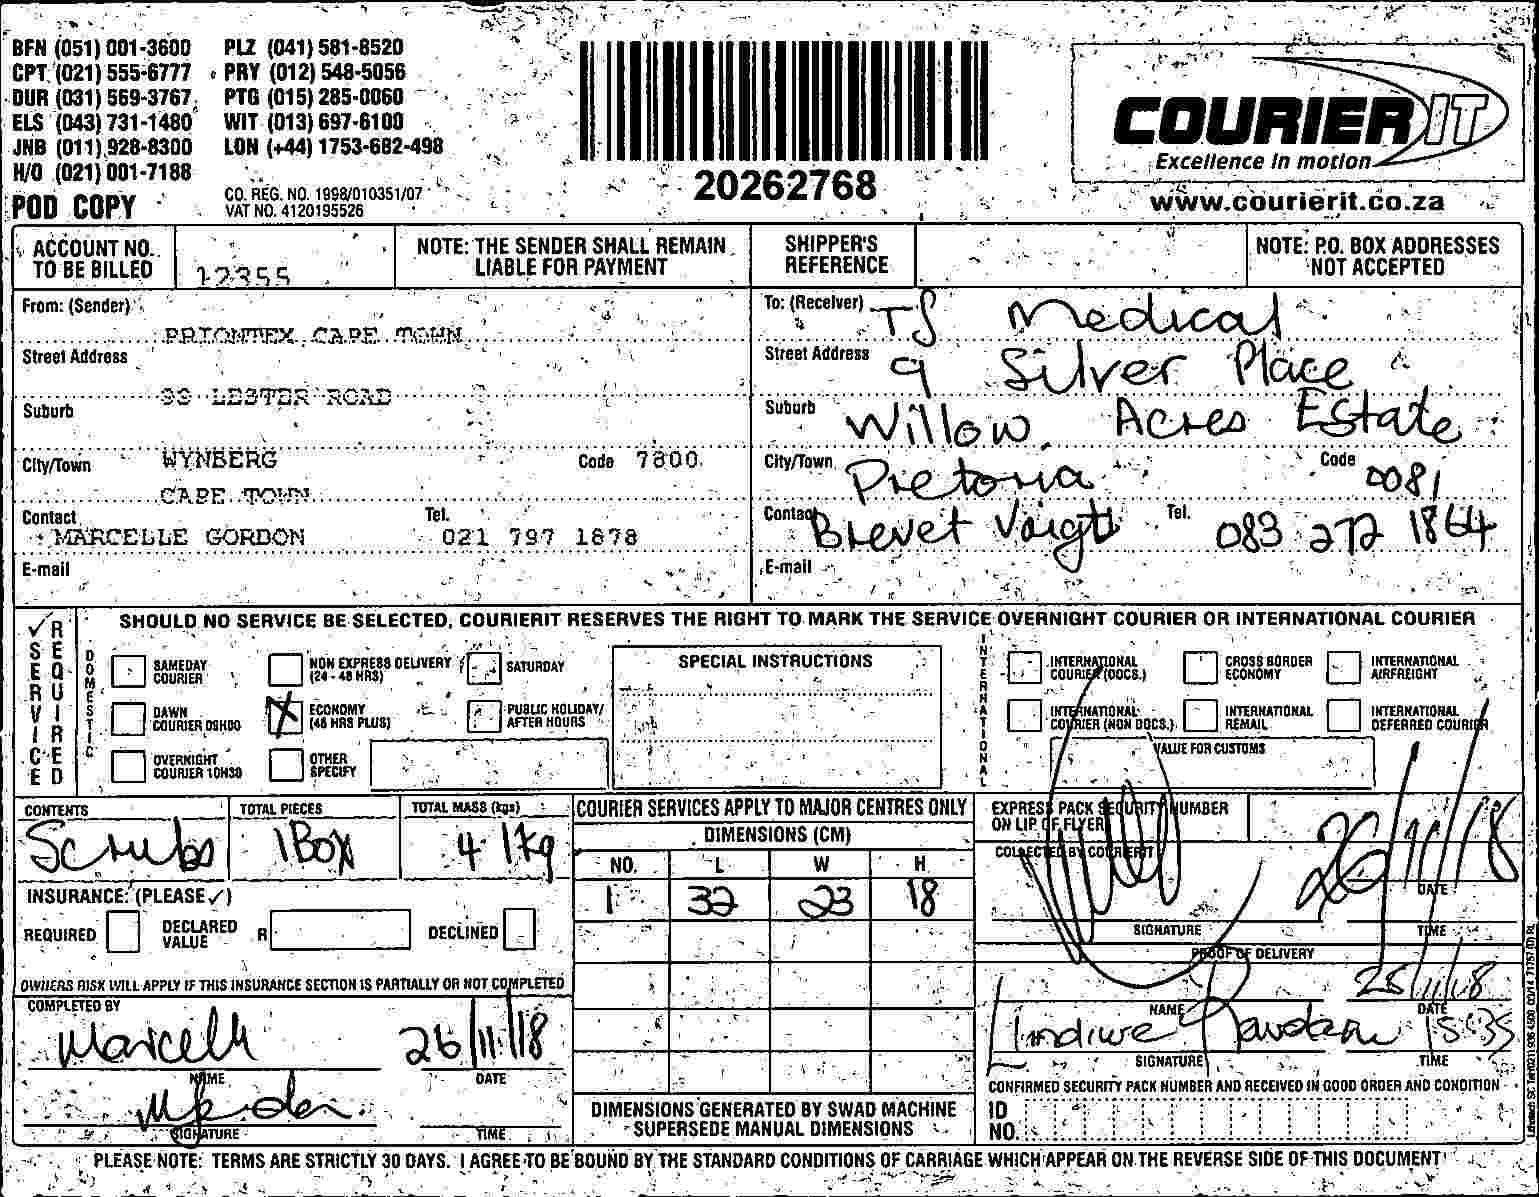 BFN (051) 001-3600 PLZ (041) 581-8520
CPT (021) 555-6777 PRY (012) 548-5056
DUR (031) 569-3767 PTG (015) 285-0060
ELS (043) 731-1480 WIT (013) 697-6100
JNB (011) 928-8300 LON (+44) 1753-682-498
H/O (021) 001-7188
POD COPY
CO. REG. NO. 1998/010351/07
VAT NO. 4120195526
20262768
COURIER IT
Excellence in motion
www.courierit.co.za
ACCOUNT NO. TO BE BILLED 12355
NOTE: THE SENDER SHALL REMAIN LIABLE FOR PAYMENT
SHIPPER'S REFERENCE
NOTE: P.O. BOX ADDRESSES NOT ACCEPTED
From: (Sender)
PRIONTEX CAPE TOWN
Street Address
33 LESTER ROAD
Suburb
City/Town WYNBERG Code 7800
CAPE TOWN
Contact Tel.
MARCELLE GORDON 021 797 1878
E-mail
To: (Receiver) TS Medical
Street Address 9 Silver Place
Suburb Willow Acres Estate
City/Town Pretoria Code 0081
Contact Brevet Voigt Tel. 083 272 1864
E-mail
SHOULD NO SERVICE BE SELECTED, COURIERIT RESERVES THE RIGHT TO MARK THE SERVICE OVERNIGHT COURIER OR INTERNATIONAL COURIER
✓ SERVICE REQUIRED
DOMESTIC
SAMEDAY COURIER
NON EXPRESS DELIVERY (24 - 48 HRS)
SATURDAY
DAWN COURIER 09H00
X ECONOMY (48 HRS PLUS)
PUBLIC HOLIDAY/ AFTER HOURS
OVERNIGHT COURIER 10H30
OTHER SPECIFY
SPECIAL INSTRUCTIONS
INTERNATIONAL
INTERNATIONAL COURIER (DOCS.)
CROSS BORDER ECONOMY
INTERNATIONAL AIRFREIGHT
INTERNATIONAL COURIER (NON DOCS.)
INTERNATIONAL REMAIL
INTERNATIONAL DEFERRED COURIER
VALUE FOR CUSTOMS
CONTENTS TOTAL PIECES TOTAL MASS (kgs)
Scrubs 1 Box 4.1kg
INSURANCE: (PLEASE ✓)
REQUIRED DECLARED VALUE R DECLINED
OWNERS RISK WILL APPLY IF THIS INSURANCE SECTION IS PARTIALLY OR NOT COMPLETED
COMPLETED BY
26/11/18
NAME DATE
SIGNATURE TIME
COURIER SERVICES APPLY TO MAJOR CENTRES ONLY
DIMENSIONS (CM)
NO. L W H
1 32 23 18
DIMENSIONS GENERATED BY SWAD MACHINE SUPERSEDE MANUAL DIMENSIONS
EXPRESS PACK SECURITY NUMBER ON LIP OF FLYER
COLLECTED BY COURIERIT
26/11/18
DATE
SIGNATURE TIME
PROOF OF DELIVERY
NAME DATE
Lindiwe
SIGNATURE TIME
CONFIRMED SECURITY PACK NUMBER AND RECEIVED IN GOOD ORDER AND CONDITION
ID NO.
PLEASE NOTE: TERMS ARE STRICTLY 30 DAYS. I AGREE TO BE BOUND BY THE STANDARD CONDITIONS OF CARRIAGE WHICH APPEAR ON THE REVERSE SIDE OF THIS DOCUMENT